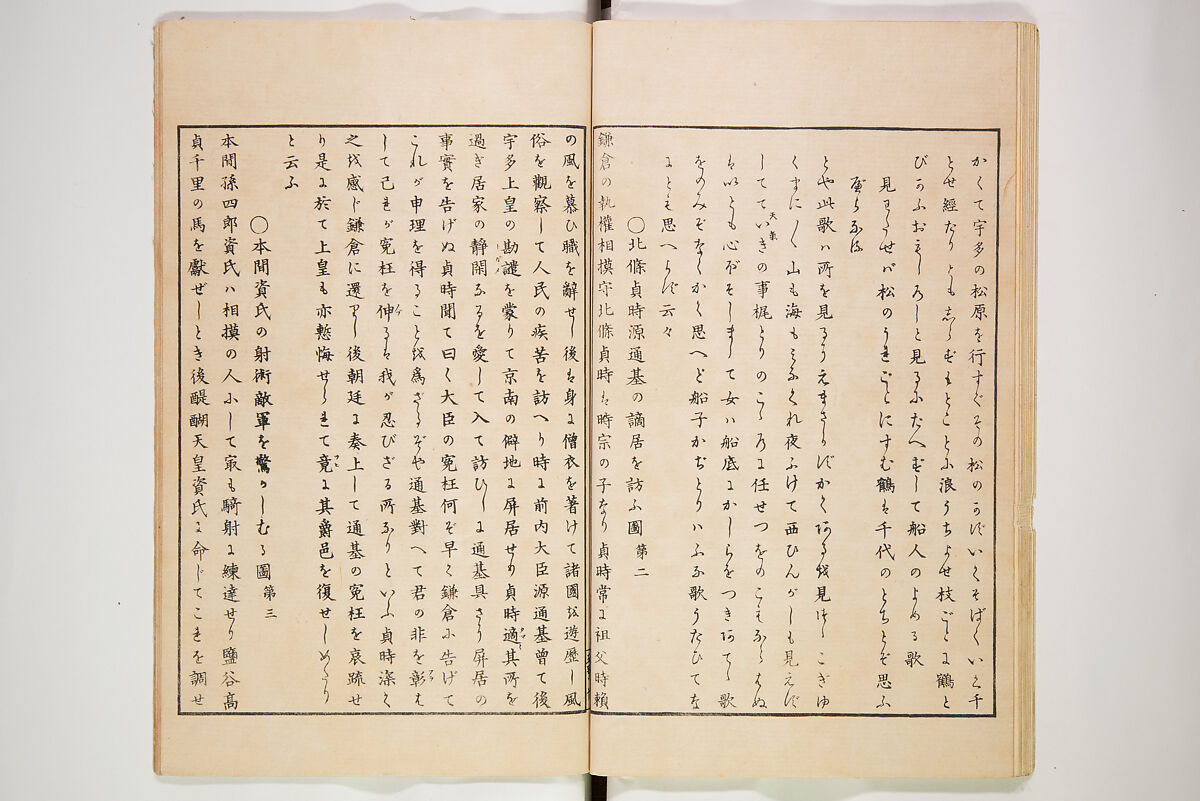 かくて宇多の松原を行すぐその松のかずいくそばくいく千
とせ經たりともしらずもとごとに浪うちよせ枝ごとに鶴と
びかふおもしろしと見るにたへずして船人のよめる歌
見わたせバ松のうれごとにすむ鶴は千代のどちとぞ思ふ
べらなる
とや此歌ハ所を見るにえまさらずかくあるを見つゝこぎゆ
くまに〳〵山も海もみなくれ夜ふけて西ひんがしも見えず
してていきの事梶とりのこゝろに任せつをのこもならはぬ
はいとも心ぼそしまして女ハ船底にかしらをつきあてゝ歌
をのみぞなくかく思へど船子かぢとりハふな歌うたひてな
にとも思へらず云々
〇北條貞時源通基の謫居を訪ふ圖 第二
鎌倉の執權相摸守北條貞時は時宗の子なり貞時常に祖父時賴
の風を慕ひ職を辭せし後は身に僧衣を著けて諸國を遊歷し風
俗を觀察して人民の疾苦を訪へり時に前內大臣源通基曾て後
宇多上皇の勘譴を蒙りて京南の僻地に屏居せり貞時適其所を
過ぎ居家の靜閑なるを愛して入て訪ひしに通基具さに屏居の
事實を告げぬ貞時聞て曰く大臣の寃枉何ぞ早く鎌倉に告げて
これが申理を得ることを爲ざるぞや通基對へて君の非を彰は
して己れが寃枉を伸るは我が忍びざる所なりといふ貞時深く
之を感じ鎌倉に還りし後朝廷に奏上して通基の寃枉を哀疏せ
り是に於て上皇も亦慙悔せられて竟に其爵邑を復せしめたり
と云ふ
〇本間資氏の射術敵軍を驚かしむる圖 第三
本間孫四郎資氏ハ相摸の人にして㝡も騎射に練達せり鹽谷高
貞千里の馬を獻ぜしとき後醍醐天皇資氏に命じてこれを調せ